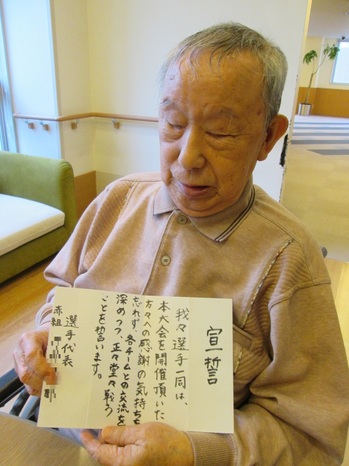 宣誓
我々選手一同は、
本大会を開催頂いた
方々への感謝の気持ちを
忘れず、各チームとの交流を
深めつつ、正々堂々戦う
ことを誓います。
選手代表
赤組